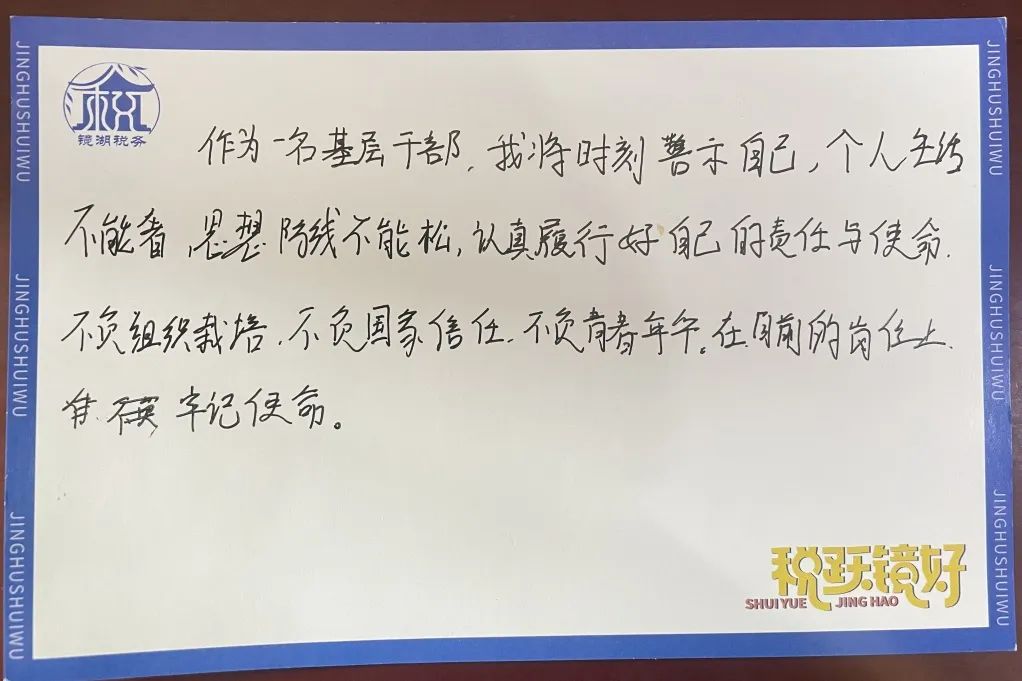 税
镜湖税务
作为一名基层干部,我将时刻警示自己,个人主
不能奢,思想防线不能松,认真履行好自己的责任与使命.
不负组织栽培.不负国家信任.不负青春年华。在目前的岗位上.
牢记使命。
税跃镜好
SHUI YUE JING HAO
JINGHUSHUIWU
JINGHUSHUIWU
JINGHUSHUIWU
JINGHUSHUIWU
JINGHUSHUIWU
JINGHUSHUIWU